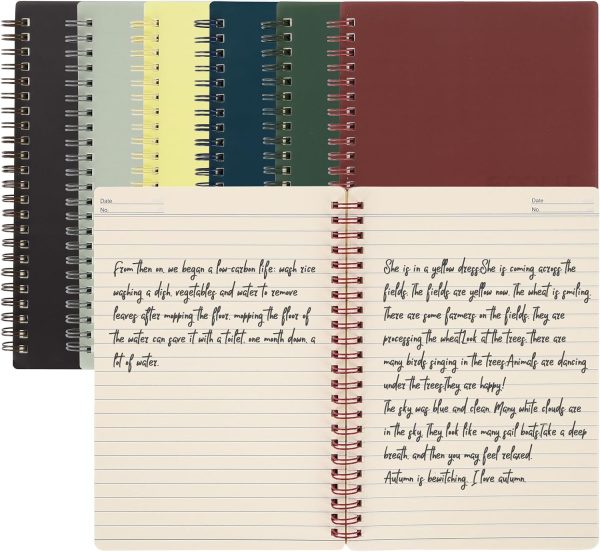 Date
No.
From then on, we began a low-carbon life: wash rice
washing a dish, vegetables and water to remove
leaves after mopping the floor, mopping the floor of
the water can save it with a toilet, one month down, a
lot of water.
Date
No.
She is in a yellow dress.She is coming across the
fields. The fields are yellow now. The wheat is smiling.
There are some farmers on the fields. They are
processing the wheat.Look at the trees, there are
many birds singing in the trees.Animals are dancing
under the trees.They are happy!
The sky was blue and clean. Many white clouds are
in the sky. They look like many sail boats.Take a deep
breath, and then you may feel relaxed.
Autumn is bewitching. I love autumn.